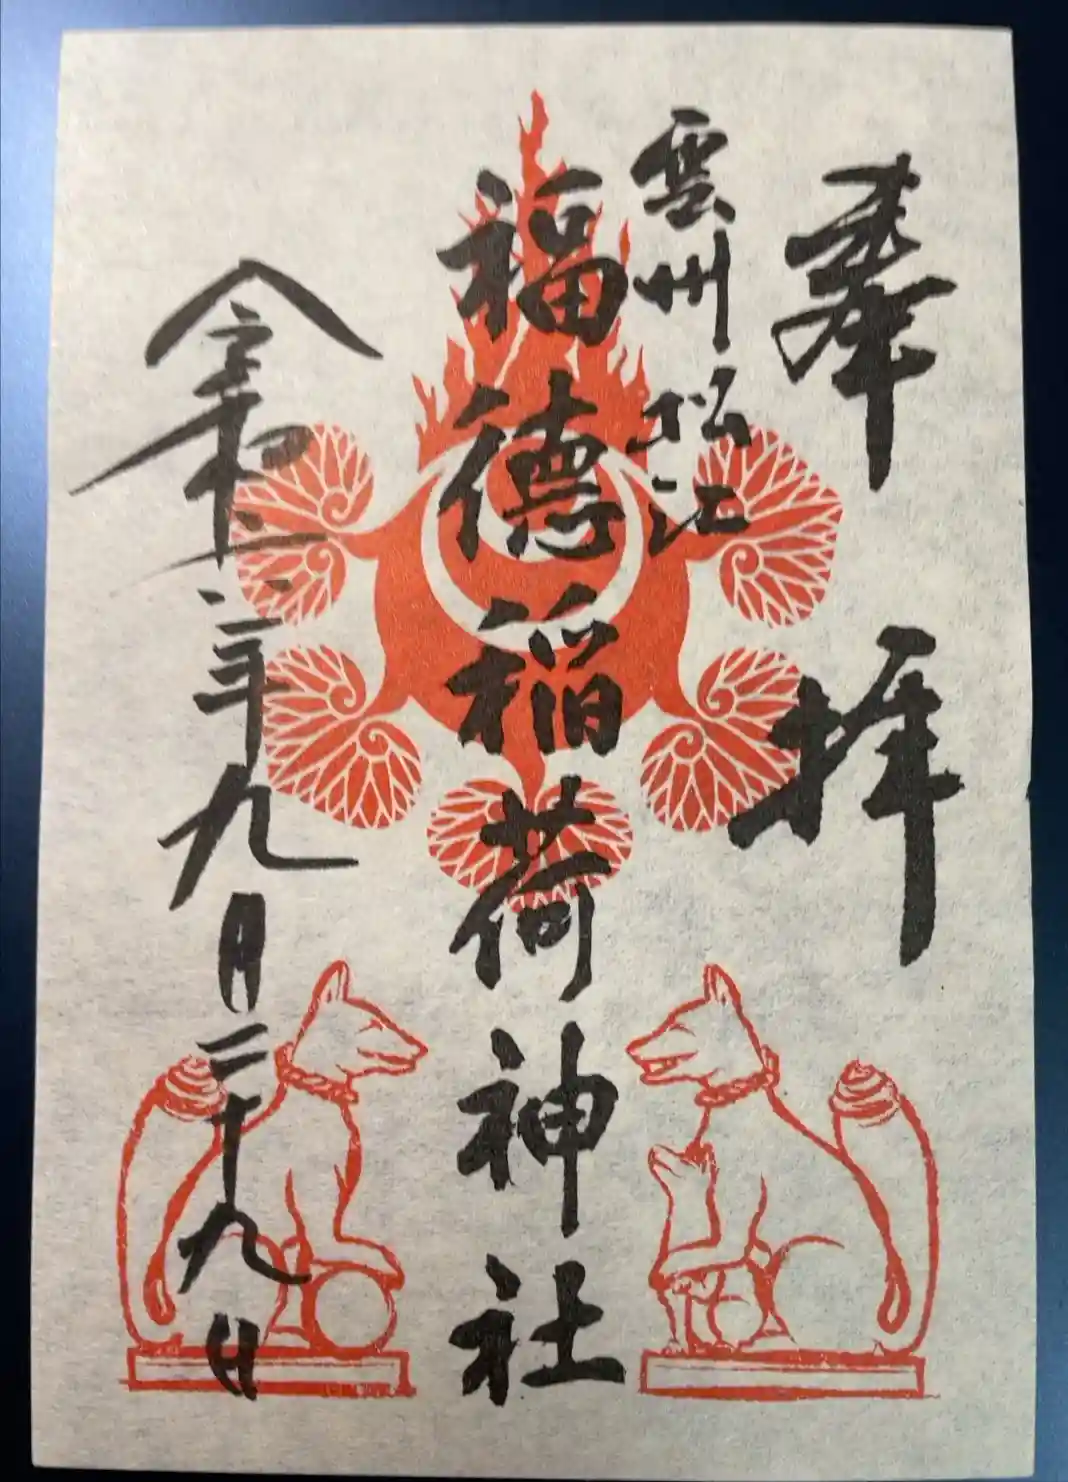 奉拝
雲州松江
福徳稲荷神社
令和三年九月二十九日